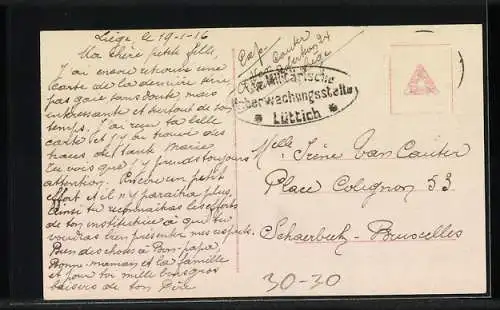 Liège, le 19-1-16
Ma chère petite fille,
J'ai encore retrouvé une
carte de la dernière
pas gaie sans doute, mais
intéressante et surtout de ton
temps. J'ai reçu ta belle
carte et j'y ai trouvé des
traces de Mank Marie.
Je vois que tu y prends toujours
attention. Encore un petit
effort et il n'y paraîtra plus.
Ainsi tu reconnaîtras les efforts
de ton institutrice à qui tu
voudras bien présenter mes respects.
Bien des choses à Bon-papa,
Bonne-maman et la famille
et pour toi mille bons gros
baisers de ton Père
Exp.
Van Cauter
24
Liège
Militärische
Überwachungsstelle
* Lüttich *
Melle Irène Van Cauter
Place Colignon 53
Schaerbeek-Bruxelles
30-30